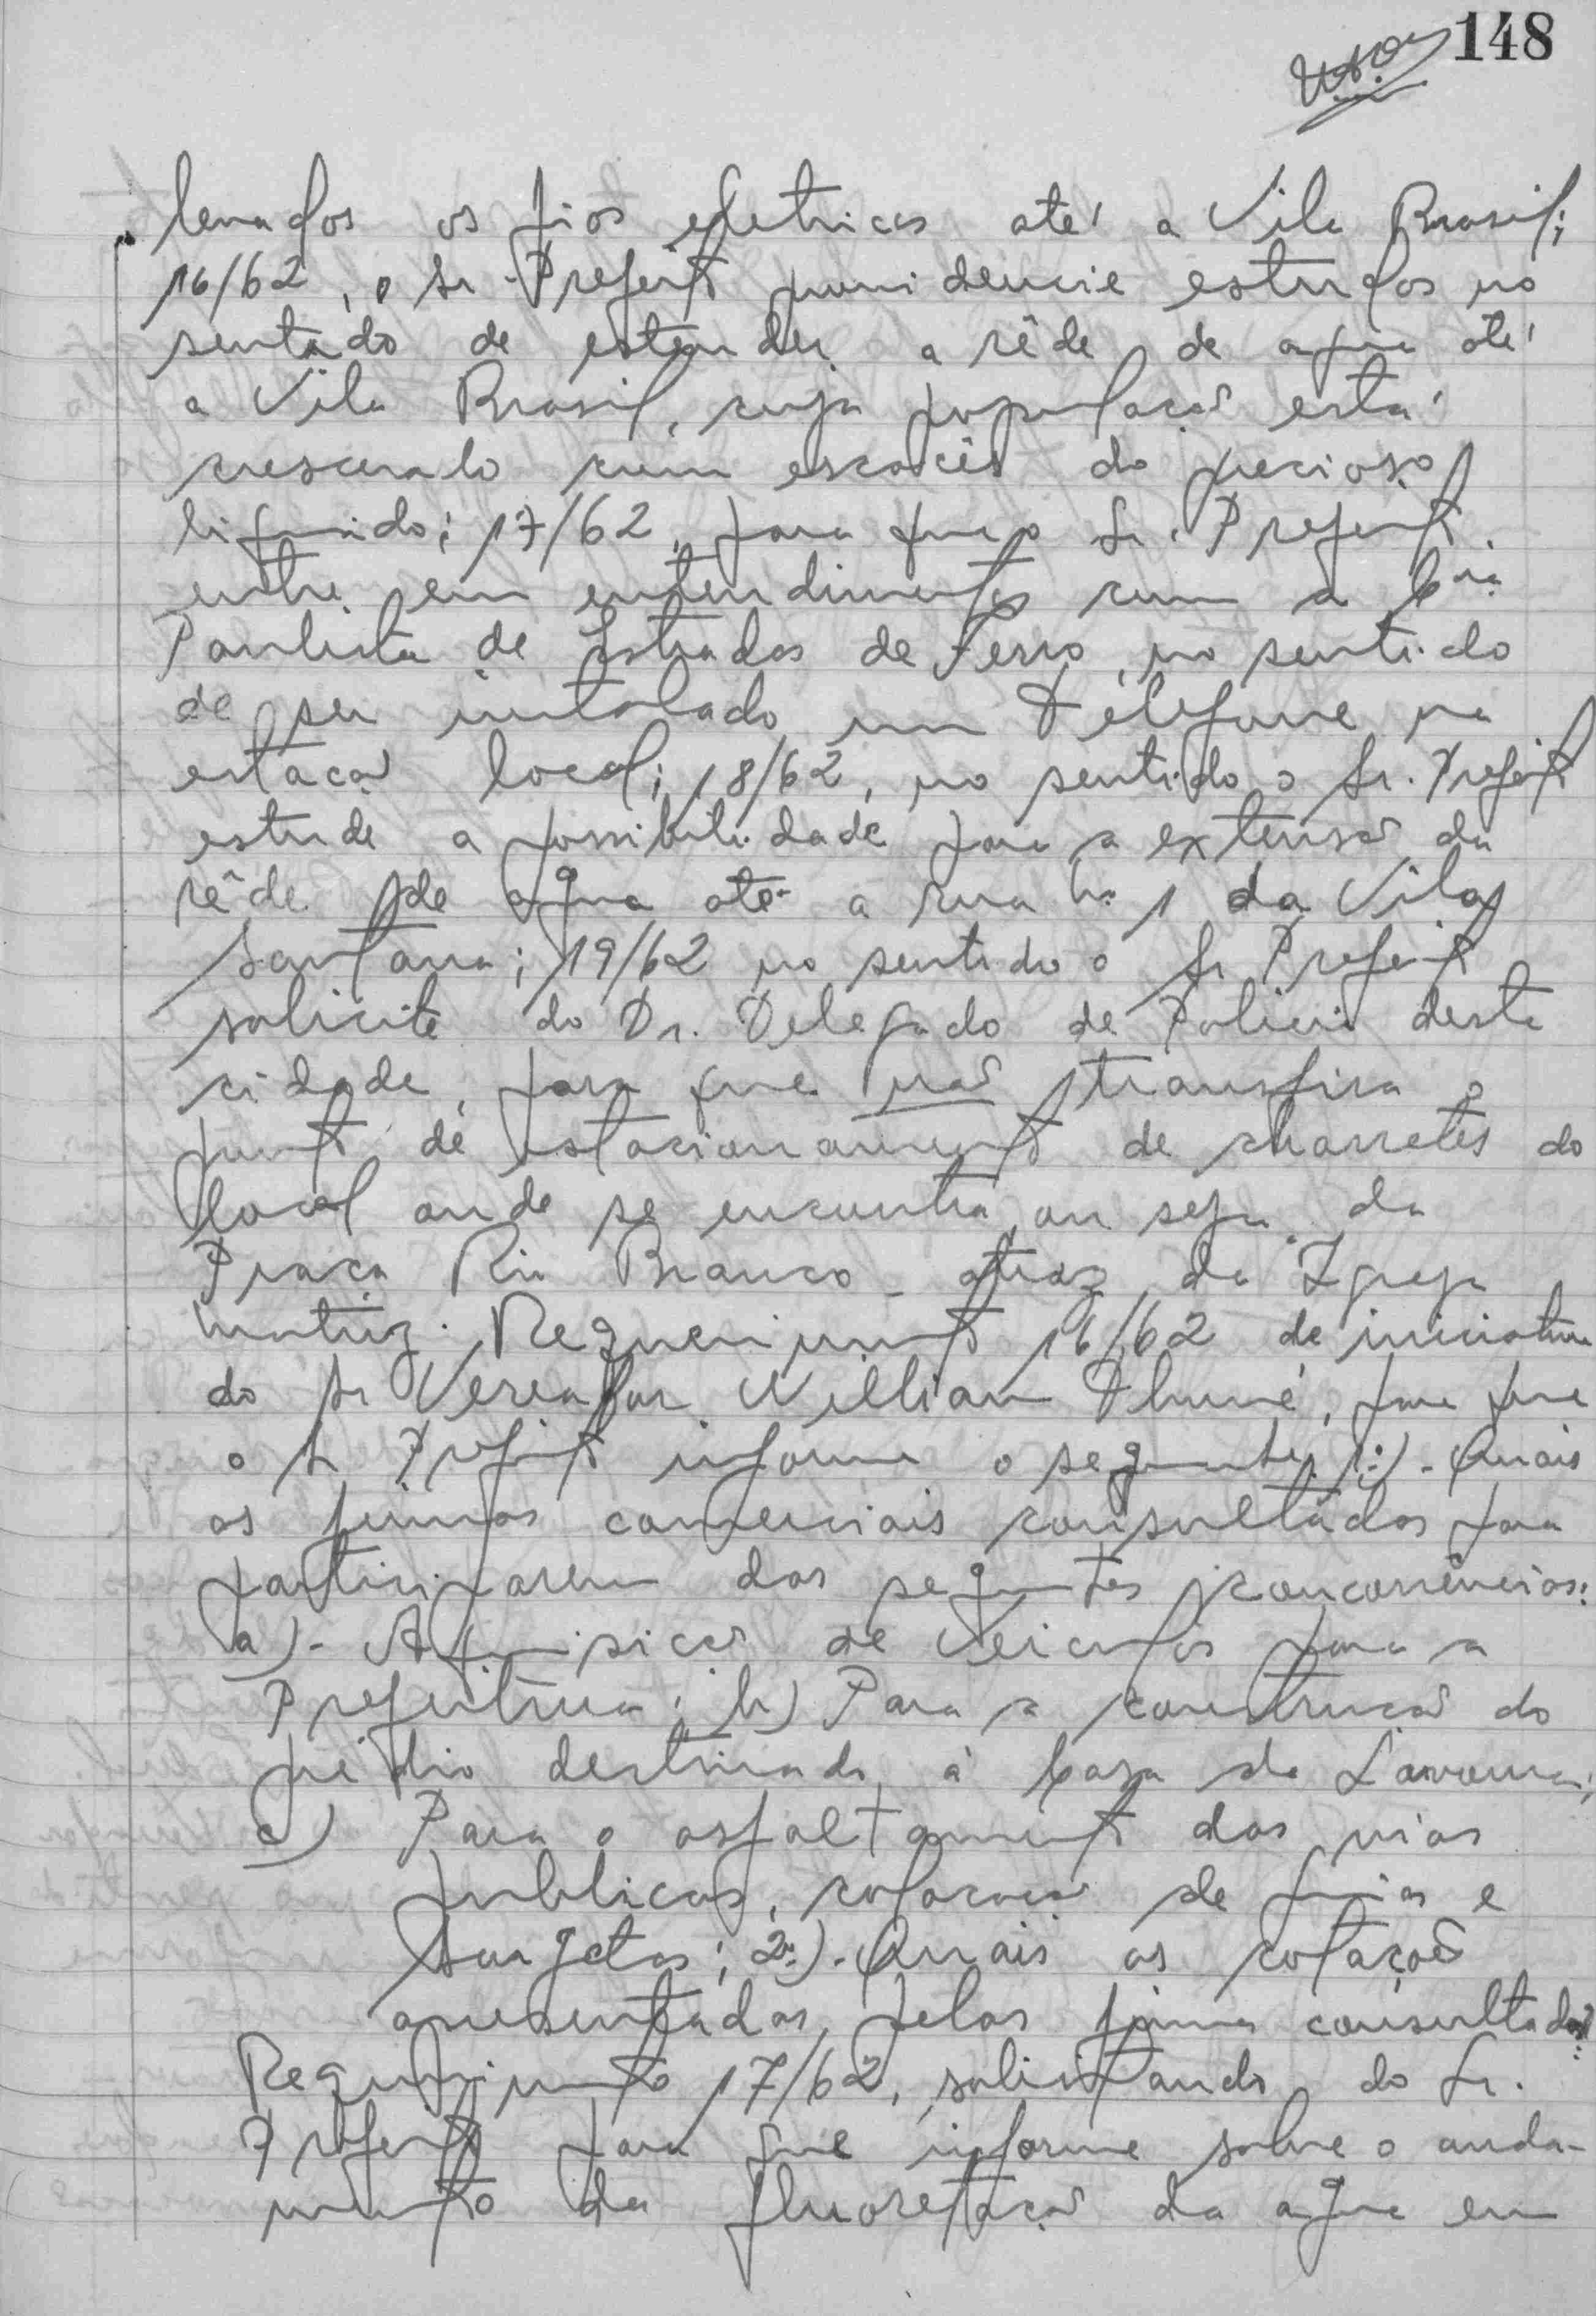 148
levados os fios eletricos até a Vila Brasil;
16/62, o Sr. Prefeito providencie estudos no
sentido de estender a rêde de agua até
a Vila Brasil, cuja população está
crescendo com escacês do precioso
liquido; 17/62, para que o Sr. Prefeito
entre em entendimentos com a Cia
Paulista de Estradas de Ferro, no sentido
de ser instalado um Telefone na
estação local; 18/62, no sentido o Sr. Prefeito
estude a possibilidade para a extensão da
rêde de agua até a rua nº 1 da Vila
Santana; 19/62 no sentido o Sr Prefeito
solicite do Dr. Delegado de Policia desta
cidade, para que não transfira o
ponto de estacionamento de charretes do
local onde se encontra, ou seja da
Praça Rio Branco - atraz da Igreja
matriz. Requerimento 16/62 de iniciativa
do Sr Vereador Willian, para que
o Sr Prefeito informe o seguinte: 1º) - Quais
as firmas comerciais consultadas para
participarem das seguintes concorrências:
a) - Aquisição de Veiculos para a
Prefeitura; b) Para a construção do
prédio destinado á Casa da Lavoura;
c) Para o asfaltamento das vias
publicas, colocação de guias e
sargetas; 2º) - Quais as cotações
apresentadas pelas firmas consultadas?
Requerimento 17/62, solicitando do Sr.
Prefeito para que informe sobre o anda-
mento da fluoretação da agua em